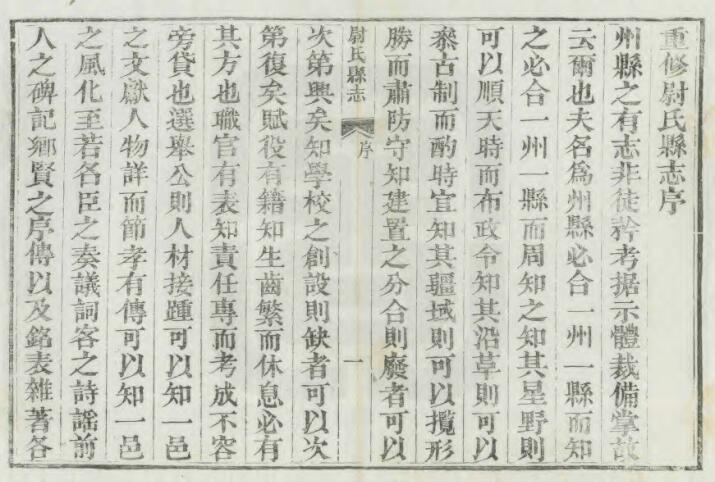 重修尉氏縣志序
州縣之有志非徒矜考据示體裁備掌故
云爾也夫名爲州縣必合一州一縣而知
之必合一州一縣而周知之知其星野則
可以順天時而布政令知其沿革則可以
叅古制而酌時宜知其疆域則可以攬形
勝而肅防守知建置之分合則廢者可以
尉氏縣志 序 一
次第興矣知學校之創設則缺者可以次
第復矣賦役有籍知生齒繁而休息必有
其方也職官有表知責任專而考成不容
旁貸也選舉公則人材接踵可以知一邑
之文獻人物詳而節孝有傳可以知一邑
之風化至若名臣之奏議詞客之詩謡前
人之碑記鄉賢之序傳以及銘表雜著各